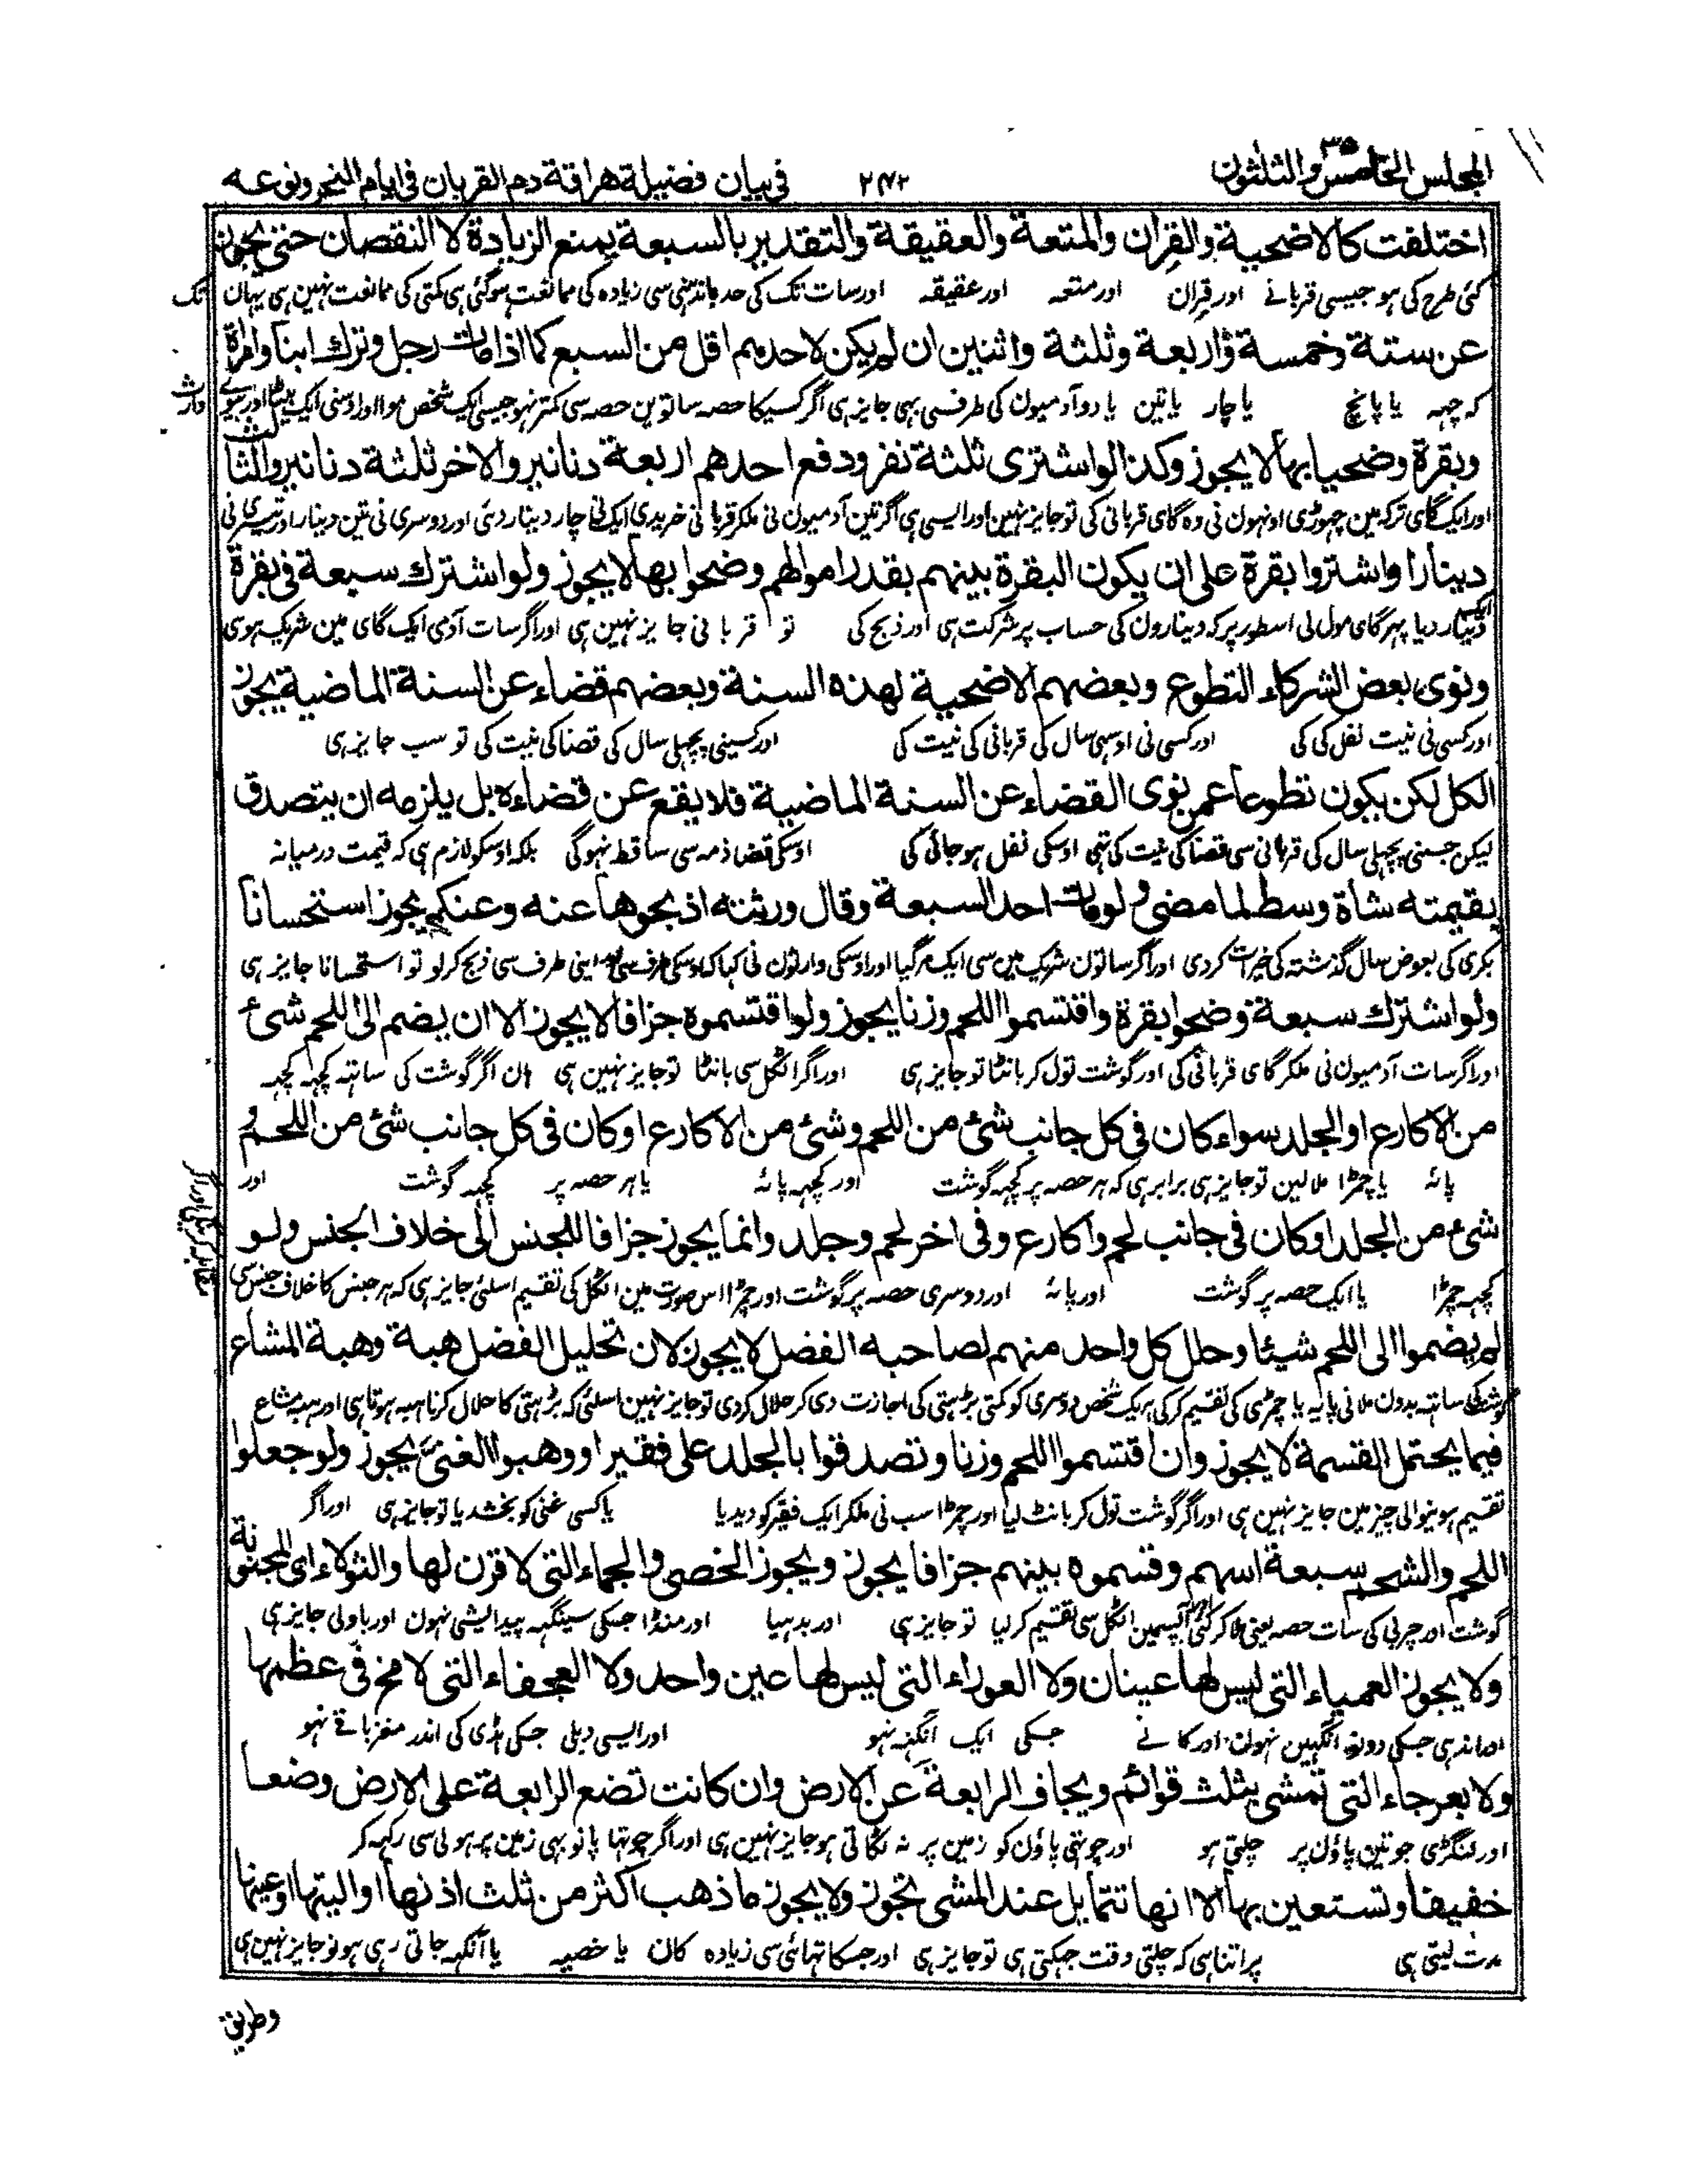 المجلس الخامس والثلثون ٣٥
٢٤٢
فی بیان فضیلة هراقة دم القربان فی ایام النحر ونوعه
اختلفت کالاضحیة والقِران والمتعة والعقیقة والتقدیر بالسبعة یمنع الزیادة لا النقصان حتی یجوز
کئی طرح کی ہو جیسی قربانے اور قِران اور متعہ اور عقیقہ اور سات تک کی حد باندہنی سی زیادہ کی ممانعت ہوگئی ہی کمتی کی ممانعت نہین ہی یہان تک
عن ستة وخمسة واربعة وثلثة واثنین ان لم یکن لاحدهم اقل من السبع کما اذا مات رجل وترك ابنا وامرأة
کہ چہہ یا پانچ یا چار یا تین یا دو آدمیون کی طرفسی بہی جایز ہی اگر کسیکا حصہ ساتوین حصہ سی کمتر نہو جیسی ایک شخص موا اور اوسنی ایک بیٹا اور بیوے وارث
وبقرة وضحیا بها لا یجوز وکذا لو اشتری ثلثة نفر ودفع احدهم اربعة دنانیر والاخر ثلثة دنانیر والثالث
اور ایک گای ترکہ مین چہوڑی اونہون نی وہ گای قربانی کی تو جایز نہین اور ایسی ہی اگر تین آدمیون نی ملکر قربانی خریدی ایک نی چار دینار دئی اور دوسری نی تین دینار اور تیسری نی
دینارا واشتروا بقرة علی ان یکون البقرة بینهم بقدر اموالهم وضحوا بها لا یجوز ولو اشترك سبعة فی بقرة
ایک دینار دیا پہر گای مول لی اسطور پر کہ دینارون کی حساب پر شرکت ہی اور ذبح کی تو قربانی جایز نہین ہی اور اگر سات آدمی ایک گای مین شریک ہوی
ونوی بعض الشرکاء التطوع وبعضهم الاضحیة لهذه السنة وبعضهم قضاء عن السنة الماضیة یجوز
اور کسی نی نیت نفل کی کی اور کسی نی اوسی سال کی قربانی کی نیت کی اور کسینی پچہلی سال کی قضا کی نیت کی تو سب جایز ہی
الکل لکن یکون تطوعا عمن نوی القضاء عن السنة الماضیة فلا یقع عن قضاءه بل یلزمه ان یتصدق
لیکن جسنی پچہلی سال کی قربانی سی قضا کی نیت کی تہی اوسکی نفل ہو جائی کی اوسکی قضا ذمہ سی ساقط نہوگی بلکہ اوسکو لازم ہی کہ قیمت درمیانہ
بقیمته شاة وسط لما مضی ولو مات احد السبعة وقال ورثته اذبحوها عنه وعنکم یجوز استحسانا
بکری کی بعوض سال گذشتہ کی خیرات کردی اور اگر ساتون شریک مین سی ایک مرگیا اور اوسکی وارثون نی کہا کہ اوسکی طرف سی اور اپنی طرف سی ذبح کرلو تو استحسانا جایز ہی
ولو اشترك سبعة وضحوا بقرة واقتسموا اللحم وزنا یجوز ولو اقتسموه جزافا لا یجوز الا ان یضم الی اللحم شیٔ
اور اگر سات آدمیون نی ملکر گای قربانی کی اور گوشت تول کر بانٹا تو جایز ہی اور اگر اٹکل سی بانٹا تو جایز نہین ہی ہان اگر گوشت کی ساتہہ کچہہ کچہہ
من الاکارع او الجلد سواء کان فی کل جانب شیٔ من اللحم وشیٔ من الاکارع او کان فی کل جانب شیٔ من اللحم و
پائہ یا چمڑا ملا لین تو جایز ہی برابر ہی کہ ہر حصہ پر کچہہ گوشت اور کچہہ پائہ یا ہر حصہ پر کچہہ گوشت اور
شیٔ من الجلد او کان فی جانب لحم واکارع وفی اخر لحم وجلد وانما یجوز جزافا للجنس الی خلاف الجنس ولو
کچہہ چمڑا یا ایک حصہ پر گوشت اور پائہ اور دوسری حصہ پر گوشت اور چمڑا اس صورت مین اٹکل کی تقسیم اسلئی جایز ہی کہ ہر جنس کا خلاف جنس سی
لم یضموا الی اللحم شیئا وحلل کل واحد منهم لصاحبه الفضل لا یجوز لان تحلیل الفضل هبة وهبة المشاع
گوشت کی ساتہہ بدون ملانی پایہ یا چمڑی کی تقسیم کرکی ہر یک شخص دوسری کو کمتی بڑہتی کی اجازت دی کر حلال کردی تو جایز نہین اسلئی کہ بڑہتی کا حلال کرنا ہبہ ہوتا ہی اور ہبہ مشاع
فیما یحتمل القسمة لا یجوز وان اقتسموا اللحم وزنا وتصدقوا بالجلد علی فقیر او وهبوا الغنی یجوز ولو جعلوا
تقسیم ہونیوالی چیز مین جایز نہین ہی اور اگر گوشت تول کر بانٹ لیا اور چمڑا سب نی ملکر ایک فقیر کو دیدیا یا کسی غنی کو بخشدیا تو جایز ہی اور اگر
اللحم والشحم سبعة اسهم وقسموه بینهم جزافا یجوز ویجوز الخصی والجماء التی لا قرن لها والثولاء ای المجنونة
گوشت اور چربی کی سات حصہ یعنی ملا کر کئی اور آپسمین اٹکل سی تقسیم کر لیا تو جایز ہی اور بدہیا اور منڈا جسکی سینگہہ پیدایشی نہون اور باولی جایز ہی
ولا یجوز العمیاء التی لیس لها عینان ولا العوراء التی لیس لها عین واحد ولا العجفاء التی لا مخ فی عظمها
اور اندہی جسکی دونو آنکہین نہون اور کانے جسکی ایک آنکہہ نہو اور ایسی دبلی جسکی ہڈی کی اندر مغز باقے نہو
ولا العرجاء التی تمشی بثلث قوائم ویجاف الرابعة عن الارض وان کانت تضع الرابعة علی الارض وضعا
اور لنگڑی جو تین پاؤن پر چلتی ہو اور چوتہی پاؤن کو زمین پر نہ ٹکاتی ہو جایز نہین ہی اور اگر چوتہا پانو بہی زمین پر ہولی سی رکہہ کر
خفیفا وتستعین بها الا انها تتمایل عند المشی تجوز ولا یجوز ما ذهب اکثر من ثلث اذنها او الیتها او عینها
مدت لیتی ہی پر اتنا ہی کہ چلتی وقت جہکتی ہی تو جایز ہی اور جسکا تہائی سی زیادہ کان یا خصیہ یا آنکہہ جاتی رہی ہو تو جایز نہین ہی
وطریق